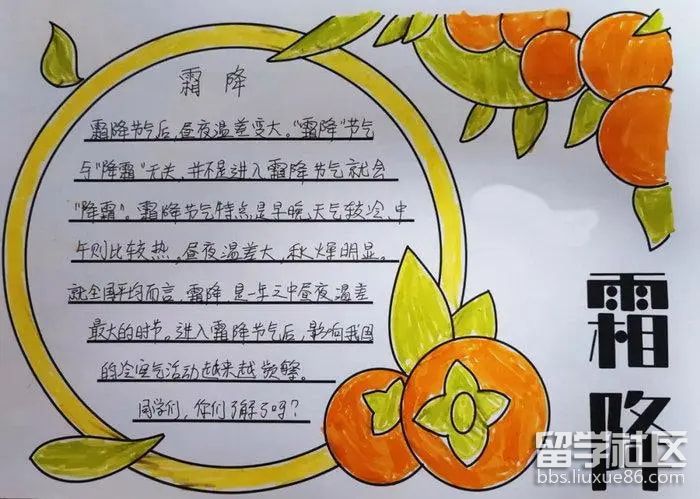 霜降
霜降节气后，昼夜温差变大。“霜降”节气
与“降霜”无关，并不是进入霜降节气就会
“降霜”。霜降节气特点是早晚天气较冷、中
午则比较热，昼夜温差大，秋燥明显。
就全国平均而言，霜降是一年之中昼夜温差
最大的时节。进入霜降节气后，影响我国
的冷空气活动越来越频繁。
同学们，你们了解了吗？
霜降
留学社区
bbs.liuxue86.com